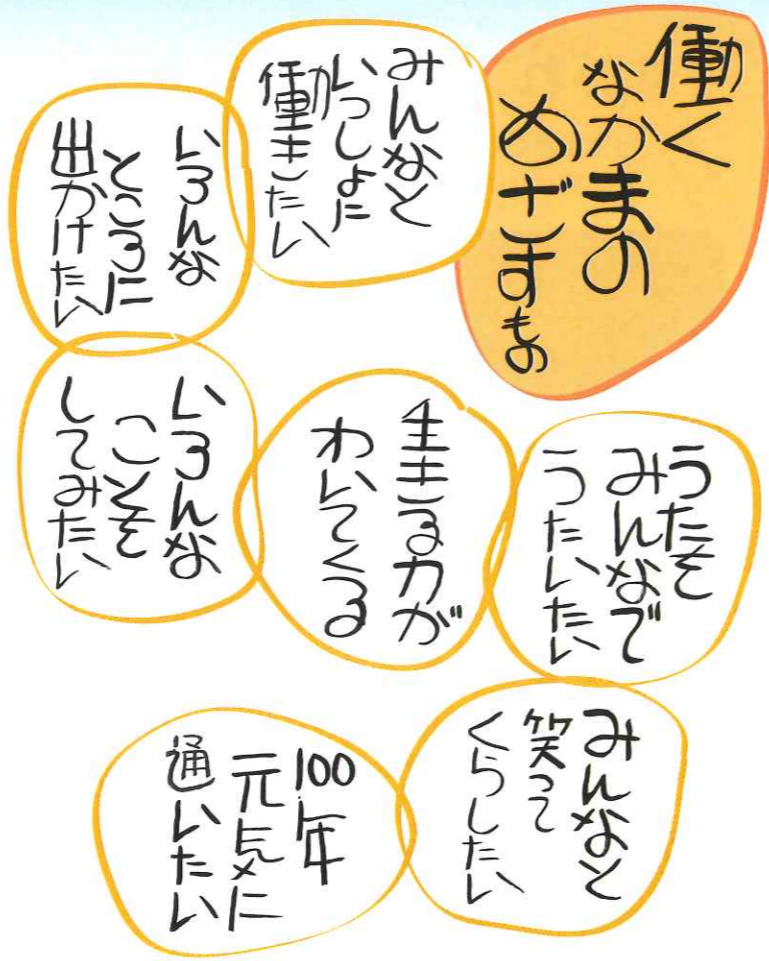 働く
なかまの
めざすもの
みんなと
いっしょに
働きたい
いろんな
ところに
出かけたい
いろんな
ことを
してみたい
生きる力が
わいてくる
うたを
みんなで
うたいたい
みんなと
笑って
くらしたい
100年
元気に
通いたい